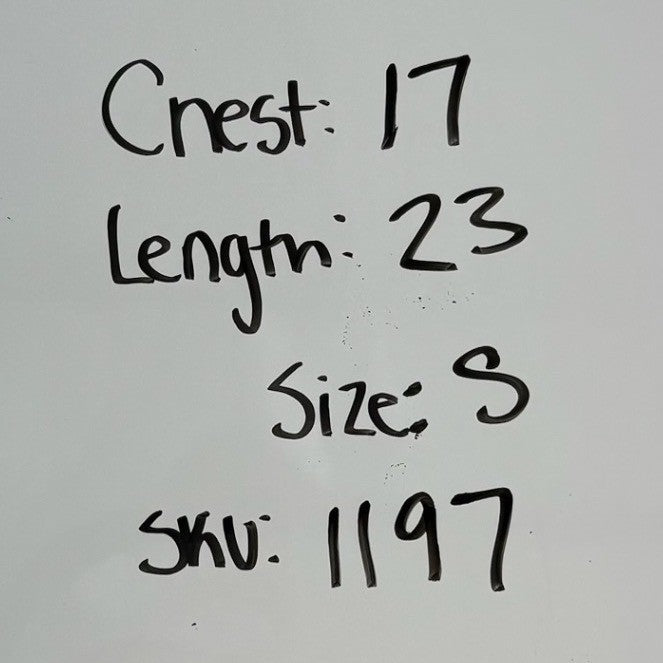 Chest: 17
Length: 23
Size: S
SKU: 1197